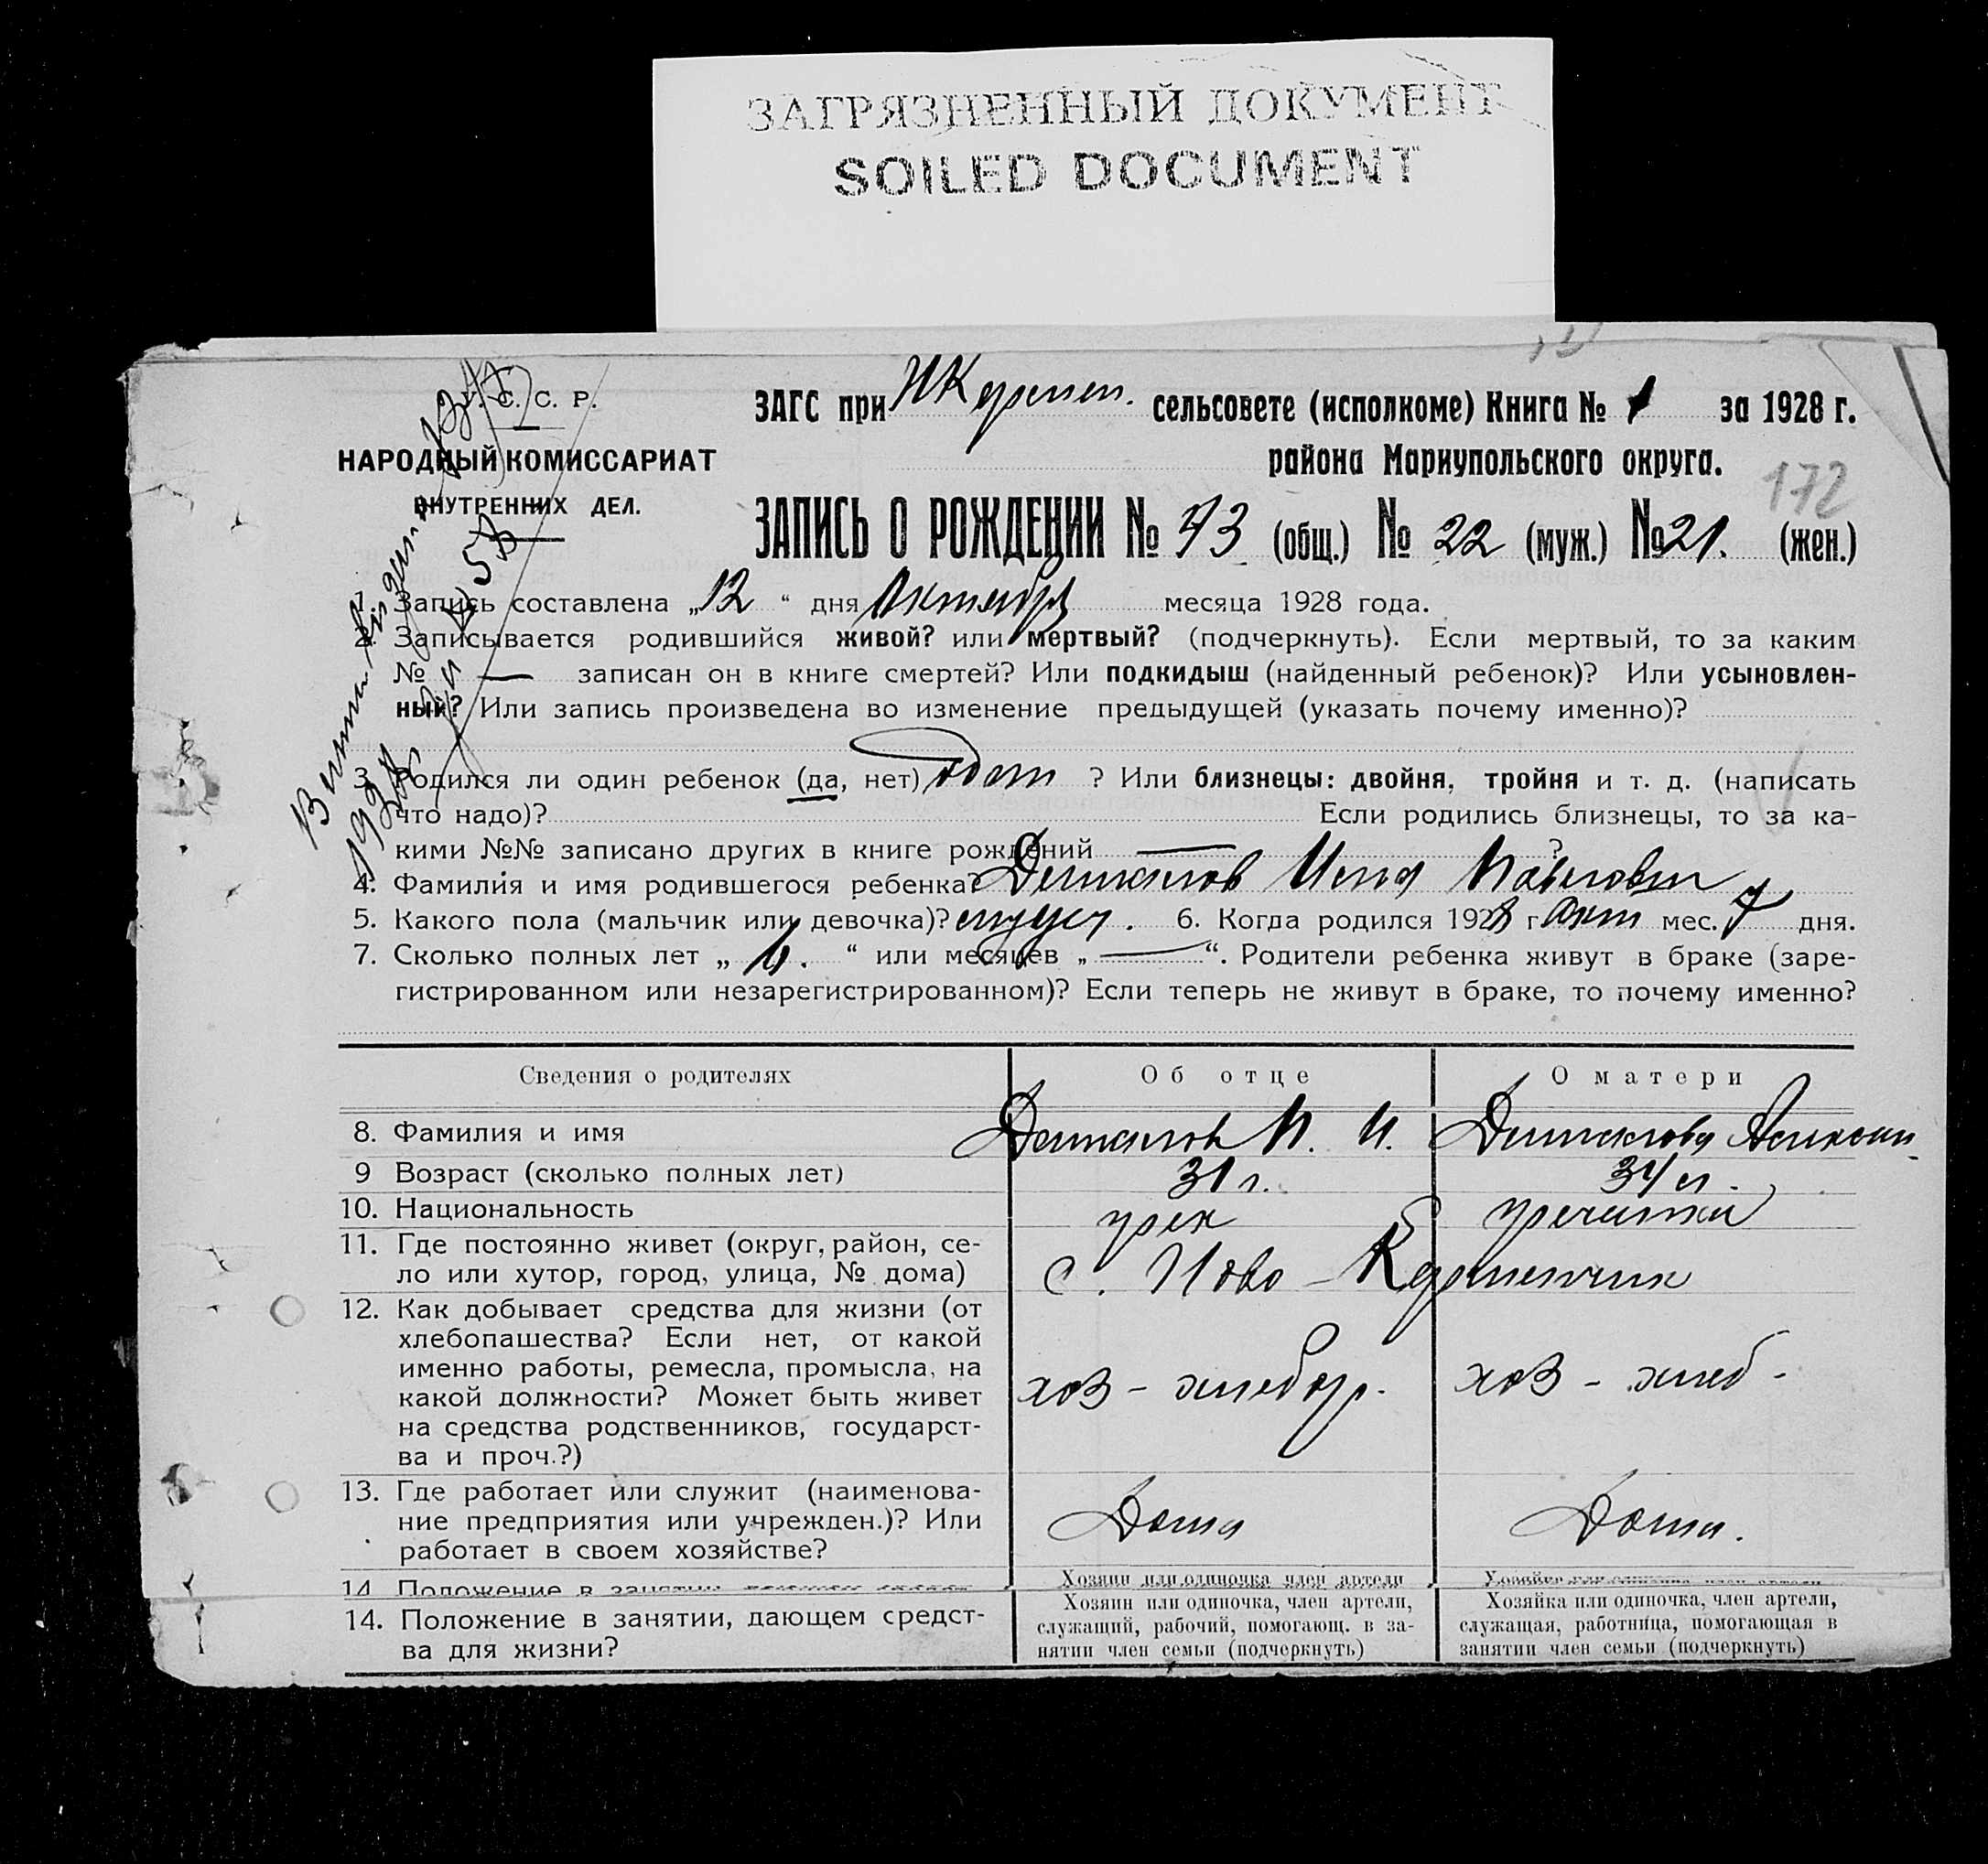 ЗАГРЯЗНЕННЫЙ ДОКУМЕНТ
SOILED DOCUMENT
У. С. С. Р.
НАРОДНЫЙ КОМИССАРИАТ
ВНУТРЕННИХ ДЕЛ.
ЗАГС при сельсовете (исполкоме) Книга № 1 за 1928 г.
района Мариупольского округа.
172
ЗАПИСЬ О РОЖДЕНИИ № 43 (общ.) № 22 (муж.) № 21. (жен.)
1. Запись составлена „12“ дня Октября месяца 1928 года.
2. Записывается родившийся живой? или мертвый? (подчеркнуть). Если мертвый, то за каким
№ — записан он в книге смертей? Или подкидыш (найденный ребенок)? Или усыновлен-
ный? Или запись произведена во изменение предыдущей (указать почему именно)?
3. Родился ли один ребенок (да, нет) один ? Или близнецы: двойня, тройня и т. д. (написать
что надо)? Если родились близнецы, то за ка-
кими №№ записано других в книге рождений — ?
4. Фамилия и имя родившегося ребенка? Павлович
5. Какого пола (мальчик или девочка)? 6. Когда родился 1928 г Окт мес. 7 дня.
7. Сколько полных лет „ “ или месяцев „ — “. Родители ребенка живут в браке (заре-
гистрированном или незарегистрированном)? Если теперь не живут в браке, то почему именно?
Сведения о родителях Об отце О матери
8. Фамилия и имя П. И.
9 Возраст (сколько полных лет) 31 г. 34 л.
10. Национальность грек гречанка
11. Где постоянно живет (округ, район, се-
ло или хутор, город, улица, № дома) с. Ново-Керменчик
12. Как добывает средства для жизни (от
хлебопашества? Если нет, от какой
именно работы, ремесла, промысла, на
какой должности? Может быть живет
на средства родственников, государст-
ва и проч.?) хоз - хлебор. хоз - хлеб -
13. Где работает или служит (наименова-
ние предприятия или учрежден.)? Или
работает в своем хозяйстве? Дома Дома.
14. Положение в занятии
Хозяин или одиночка член артели
14. Положение в занятии, дающем средст-
ва для жизни?
Хозяин или одиночка, член артели,
служащий, рабочий, помогающ. в за-
нятии член семьи (подчеркнуть)
Хозяйка или одиночка, член артели,
служащая, работница, помогающая в
занятии член семьи (подчеркнуть)